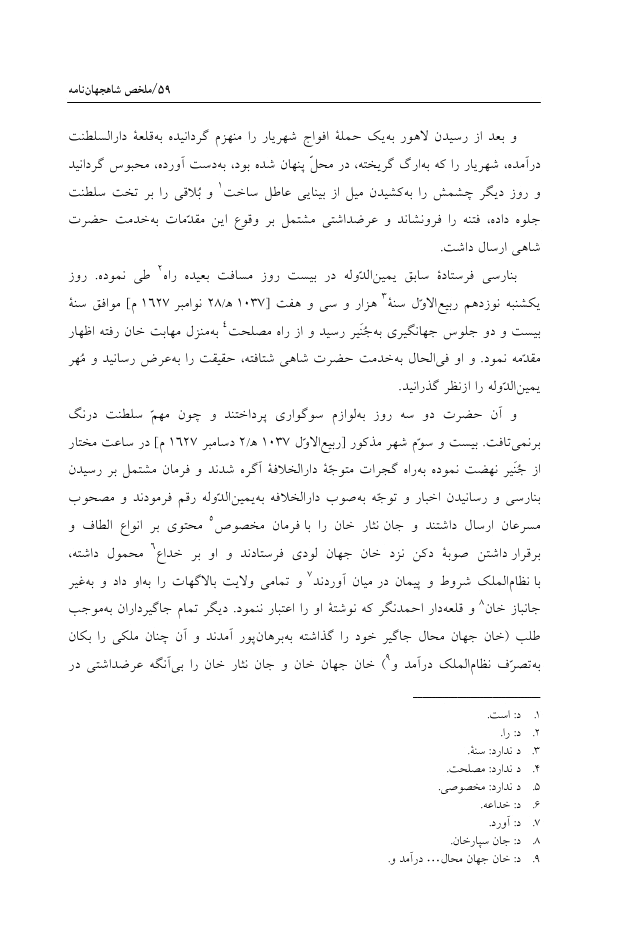 ۵۹/ملخص شاهجهان‌نامه
و بعد از رسیدن لاهور به‌یک حملۀ افواج شهریار را منهزم گردانیده به‌قلعۀ دارالسلطنت
درآمده، شهریار را که به‌ارگ گریخته، در محلّ پنهان شده بود، به‌دست آورده، محبوس گردانید
و روز دیگر چشمش را به‌کشیدن میل از بینایی عاطل ساخت۱ و بُلاقی را بر تخت سلطنت
جلوه داده، فتنه را فرونشاند و عرضداشتی مشتمل بر وقوع این مقدّمات به‌خدمت حضرت
شاهی ارسال داشت.
بنارسی فرستادۀ سابق یمین‌الدّوله در بیست روز مسافت بعیده راه۲ طی نموده. روز
یکشنبه نوزدهم ربیع‌الاوّل سنۀ۳ هزار و سی و هفت [۱۰۳۷ ه‍/۲۸ نوامبر ۱۶۲۷ م] موافق سنۀ
بیست و دو جلوس جهانگیری به‌جُنَیر رسید و از راه مصلحت۴ به‌منزل مهابت خان رفته اظهار
مقدّمه نمود. و او فی‌الحال به‌خدمت حضرت شاهی شتافته، حقیقت را به‌عرض رسانید و مُهر
یمین‌الدّوله را ازنظر گذرانید.
و آن حضرت دو سه روز به‌لوازم سوگواری پرداختند و چون مهمّ سلطنت درنگ
برنمی‌تافت. بیست و سوّم شهر مذکور [ربیع‌الاوّل ۱۰۳۷ ه‍/۲ دسامبر ۱۶۲۷ م] در ساعت مختار
از جُنَیر نهضت نموده به‌راه گجرات متوجّۀ دارالخلافۀ آگره شدند و فرمان مشتمل بر رسیدن
بنارسی و رسانیدن اخبار و توجّه به‌صوب دارالخلافه به‌یمین‌الدوله رقم فرمودند و مصحوب
مسرعان ارسال داشتند و جان نثار خان را با فرمان مخصوص۵ محتوی بر انواع الطاف و
برقرار داشتن صوبۀ دکن نزد خان جهان لودی فرستادند و او بر خداع۶ محمول داشته،
با نظام‌الملک شروط و پیمان در میان آوردند۷ و تمامی ولایت بالاگهات را به‌او داد و به‌غیر
جانباز خان۸ و قلعه‌دار احمدنگر که نوشتۀ او را اعتبار ننمود. دیگر تمام جاگیرداران به‌موجب
طلب (خان جهان محال جاگیر خود را گذاشته به‌برهان‌پور آمدند و آن چنان ملکی را یکان
به‌تصرّف نظام‌الملک درآمد و۹) خان جهان خان و جان نثار خان را بی‌آنگه عرضداشتی در
۱. د: است.
۲. د: را.
۳. د ندارد: سنۀ.
۴. د ندارد: مصلحت.
۵. د ندارد: مخصوصی.
۶. د: خداعه.
۷. د: آورد.
۸. د: جان سپارخان.
۹. د: خان جهان محال... درآمد و.